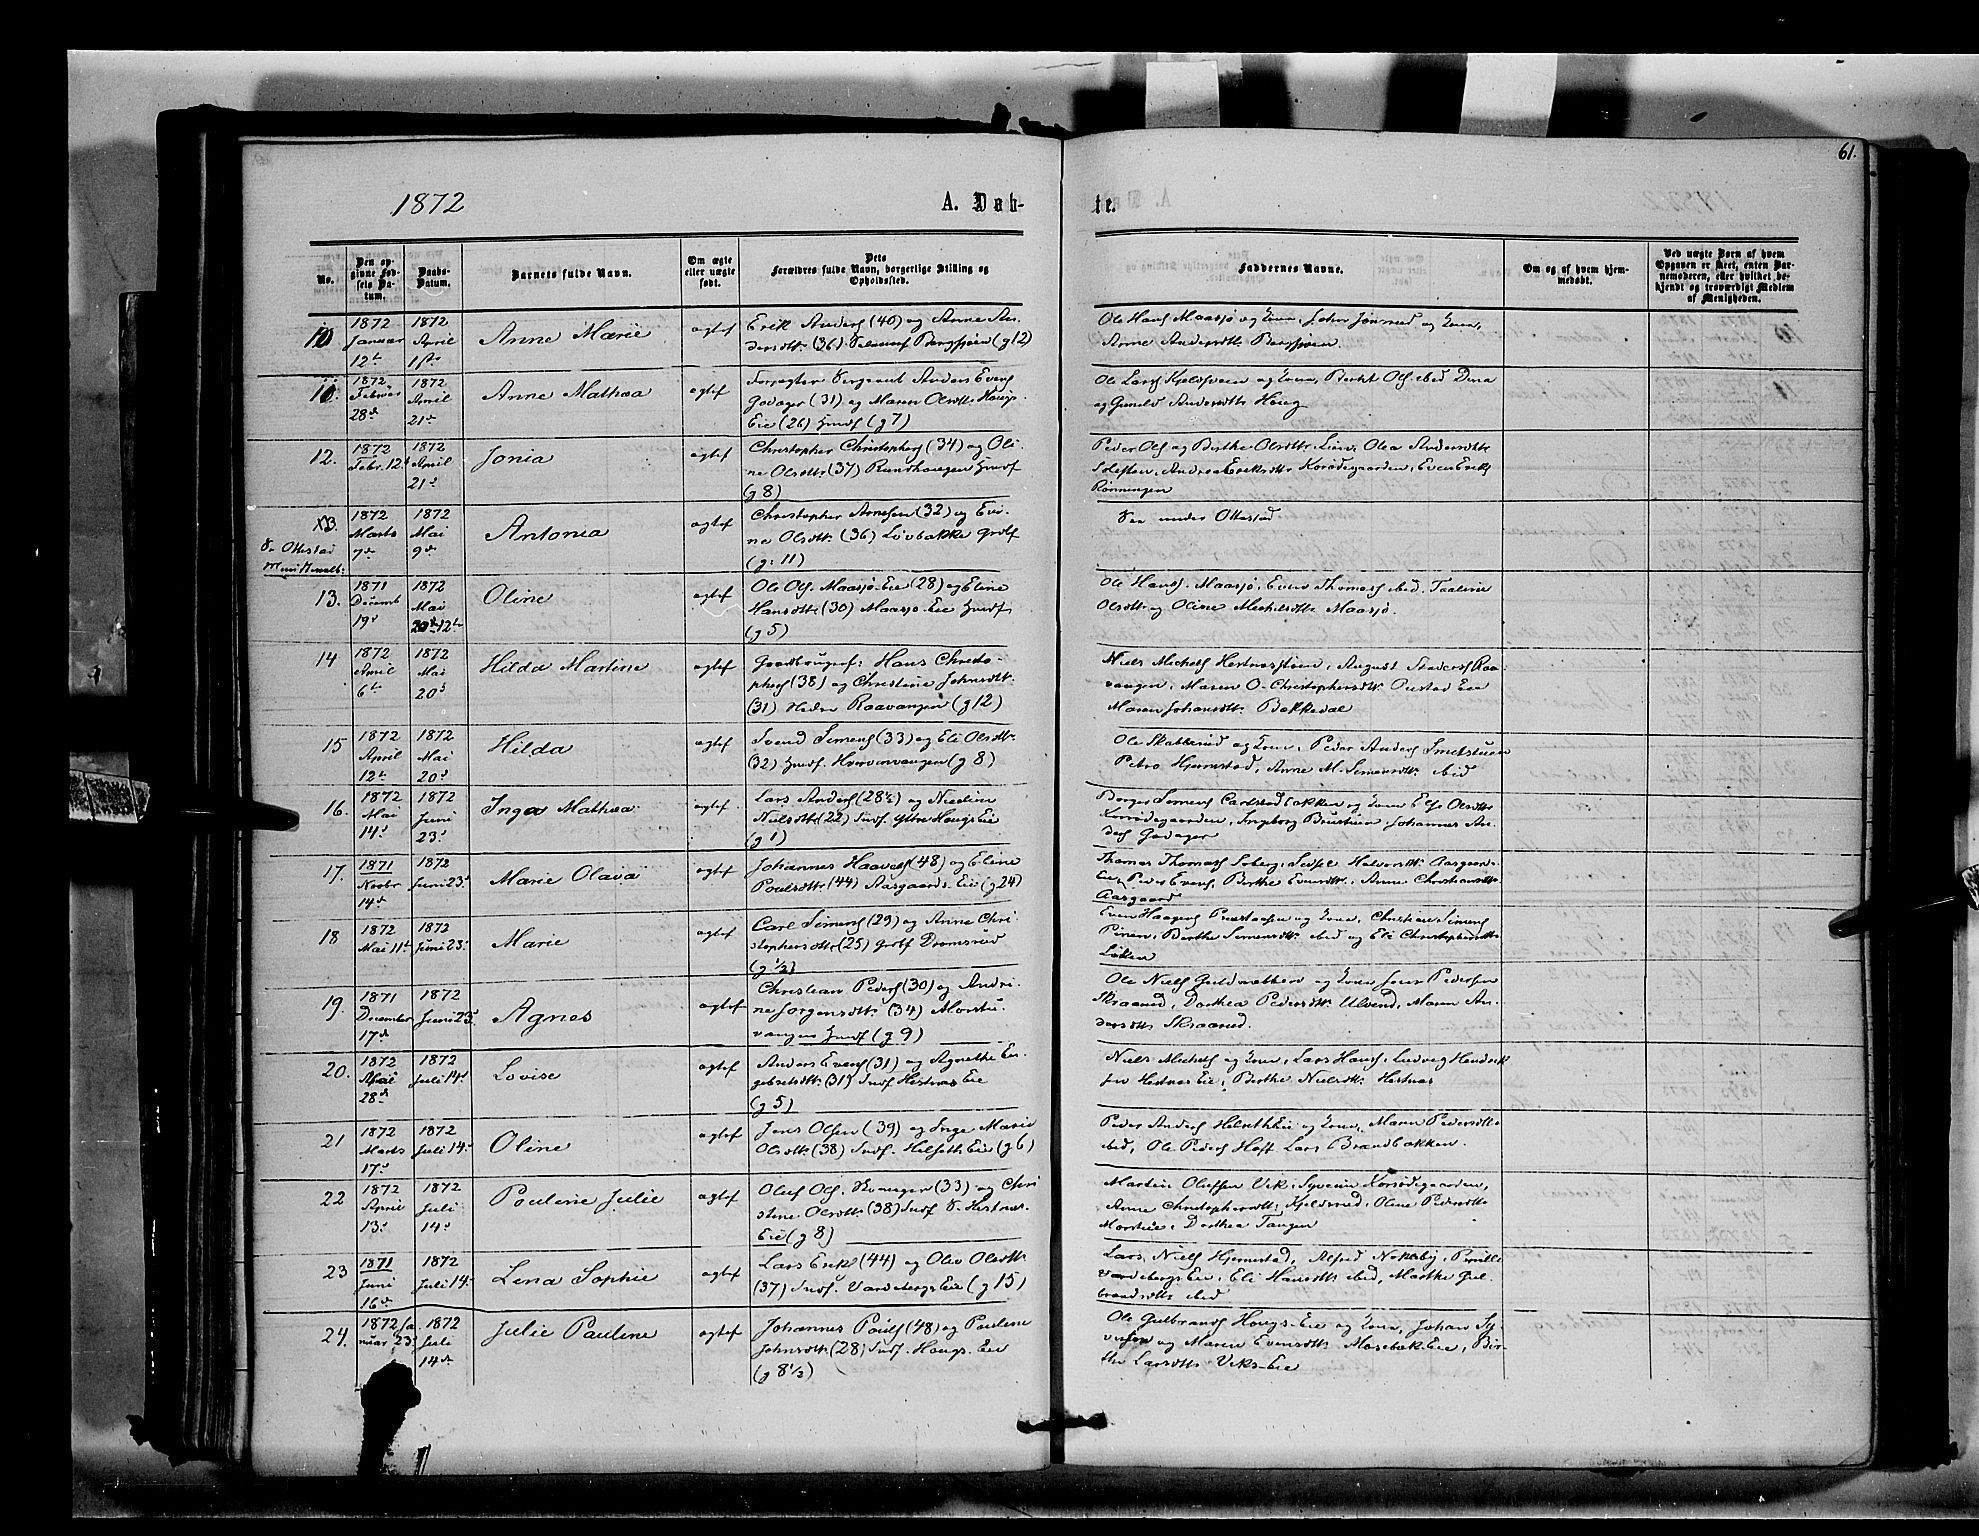 61.
1872
A. Døb-
te.
No.
Den opgivne Fødsels Datum.
Daabs-Datum.
Barnets fulde Navn.
Om ægte eller uægte født.
Dets Forældres fulde Navn, borgerlige Stilling og Opholdssted.
Faddernes Navne.
Om og af hvem hjemmedøbt.
Ved uægte Barn af hvem Opgaven er skeet, enten Barnemoderen, eller hvilket bekjendt og troværdigt Medlem af Menigheden.
10
1872 Januar 12te
1872 April 1ste
Anne Marie
ægtef
Erik Anders (40) og Anne An-
dersdtr (36) Bergsveen (g 12)
Ole Hans Maasjø og Kone,
Anne Andersdtr Bergsveen
1872 Februar 28de
1872 April 21de
Anne Mathea
ægtef
Forpagter Sergeant Anders Evens
Godager (31) og Maren Olsdtr Hougs-
Eie (26) (g 7)
Ole Lars og Kone, Berthe Ols ibid Dina
og Gunild Andersdtr Houg
12.
1872 Febr. 12te
1872 April 21de
Jonia
ægtef
Christopher Christophers (34) og Oli-
ne Olsdtr (37) Rundhaugen
(g 8)
Peder Ols og Berthe Olsdtr Lien, Olea Andersdtr
Korsødegaarden, Even Eriks
Rønningen
1872 Marts 7de
1872 Mai 9de
Antonia
ægtef
Christopher Arnesen (32) og Eli-
ne Olsdtr (36) Løvbakke
(g: 11)
See under Ottestad
Se Ottestad
13.
1871 Decemb 19de
1872 Mai 20de
Oline
ægtef
Ole Ols Maasjø-Eie (28) og Eline
Hansdtr (30) Maasjø-Eie
(g 5)
Ole Hans Maasjø, Even Thomas ibid. Taaline
Olsdtr og Oline Mickelsdtr Maasjø.
14
1872 April 6te
1872 Mai 20de
Hilda Martine
ægtef
Gaardbrugerf: Hans Christo-
phers (38) og Christine Johnsdtr
(31) Raavangen (g 12)
Niels Michels Hestnæsstuen, August Anders Raa-
vangen, Maren O. Christophersdtr Eie
Maren Johansdtr Bakkedal
15
1872 April 12te
1872 Mai 20de
Hilda
ægtef
Svend Simens (33) og Eli Olsdtr
(32) (g 8)
Ole Skabberud og Kone, Peder Anders Smedstuen
Petra Hjemstad, Anne M. Simensdtr ibid
16.
1872 Mai 14de
1872 Juni 23de
Inga Mathea
ægtef
Lars Anders (28½) og Nicoline
Nielsdtr (22) Inds. Yttre Hougs Eie
(g 1)
Borger Simens Carlstadbakken og Kone Else Olsdtr
Korsødegaarden, Ingeborg Brustuen, Johannes An-
ders Godager
17.
1871 Novbr 14de
1872 Juni 23de
Marie Olava
ægtef
Johannes Haavels (48) og Eline
Poulsdtr (44) Aasgaards-Eie (g 24)
Thomas Thomas Soberg, Sidsel Halvorsdtr Aasgaard-
Eie, Peder Evens, Berthe Evensdtr, Anne Christiansdtr
Aasgaard
18
1872 Mai 11te
1872 Juni 23de
Marie
ægtef
Carl Simens (29) og Anne Chri-
stophersdtr (25) Dromsrud
(g ½)
Even Haagens Præstaasen og Kone, Christian Simens
Berthe Simensdtr ibid og Eli Christophersdtr
Løken
19.
1871 December 17de
1872 Juni 23de
Agnes
ægtef
Christian Peders (30) og Andri-
ne Jørgensdtr (34) Morstu-
vangen (g 9)
Ole Niels og Kone Jens Pedersen
Skraarud, Dorthea Pedersdtr Ulven, Maren An-
dersdtr Skraarud.
20.
1872 April 28de
1872 Juli 14de
Lovise
ægtef
Anders Evens (31) og Agnethe En-
gebretsdtr (31) Inds Hestnæs Eie
(g 5)
Niels Michels og Kone, Lars Hans, Ludvig Hendrik-
sen Hestnæs Eie, Berthe Nielsdtr Hestnæs
21
1872 Marts 17de
1872 Juli 14de
Oline
ægtef
Jens Olsen (39) og Inge Marie
Olsdtr (38) Inds. Helseth Eie (g 6)
Peder Anders Helseth Eie og Kone, Maren Pedersdtr
ibid, Ole Peders Hoff Lars Brandbakken.
22
1872 April 13de
1872 Juli 14de
Pauline Julie
ægtef
Oluf Ols. (33) og Chri-
stine Olsdtr (38) Inds S. Hestnæs-
Eie (g 8)
Martin Olufsen Vik, Syverin Korsødegaarden,
Anne Christophersdtr Kjelsrud, Oline Pedersdtr
Morstue, Dorthea Tangen
23
1871 Juni 16de
1872 Juli 14de
Lina Sophie
ægtef
Lars Eriks (44) og Oliv Olsdtr
(37) Inds. Vardebergs Eie (g 15)
Lars Niels Hjemstad, Alfred Nokleby, Pernille
Vardebergs Eie, Eli Hansdtr ibid, Marthe Gul-
brandsdtr ibid
24.
1872 Januar 23de
1872 Juli 14de
Julie Pauline
ægtef
Johannes Pouls (48) og Pauline
Johnsdtr (28) Inds. Hougs. Eie
(g 8½)
Ole Gulbrands Hougs-Eie og Kone, Johan Sy-
versen og Maren Evensdtr Mosebæk-Eie, Ber-
the Larsdtr Viks-Eie